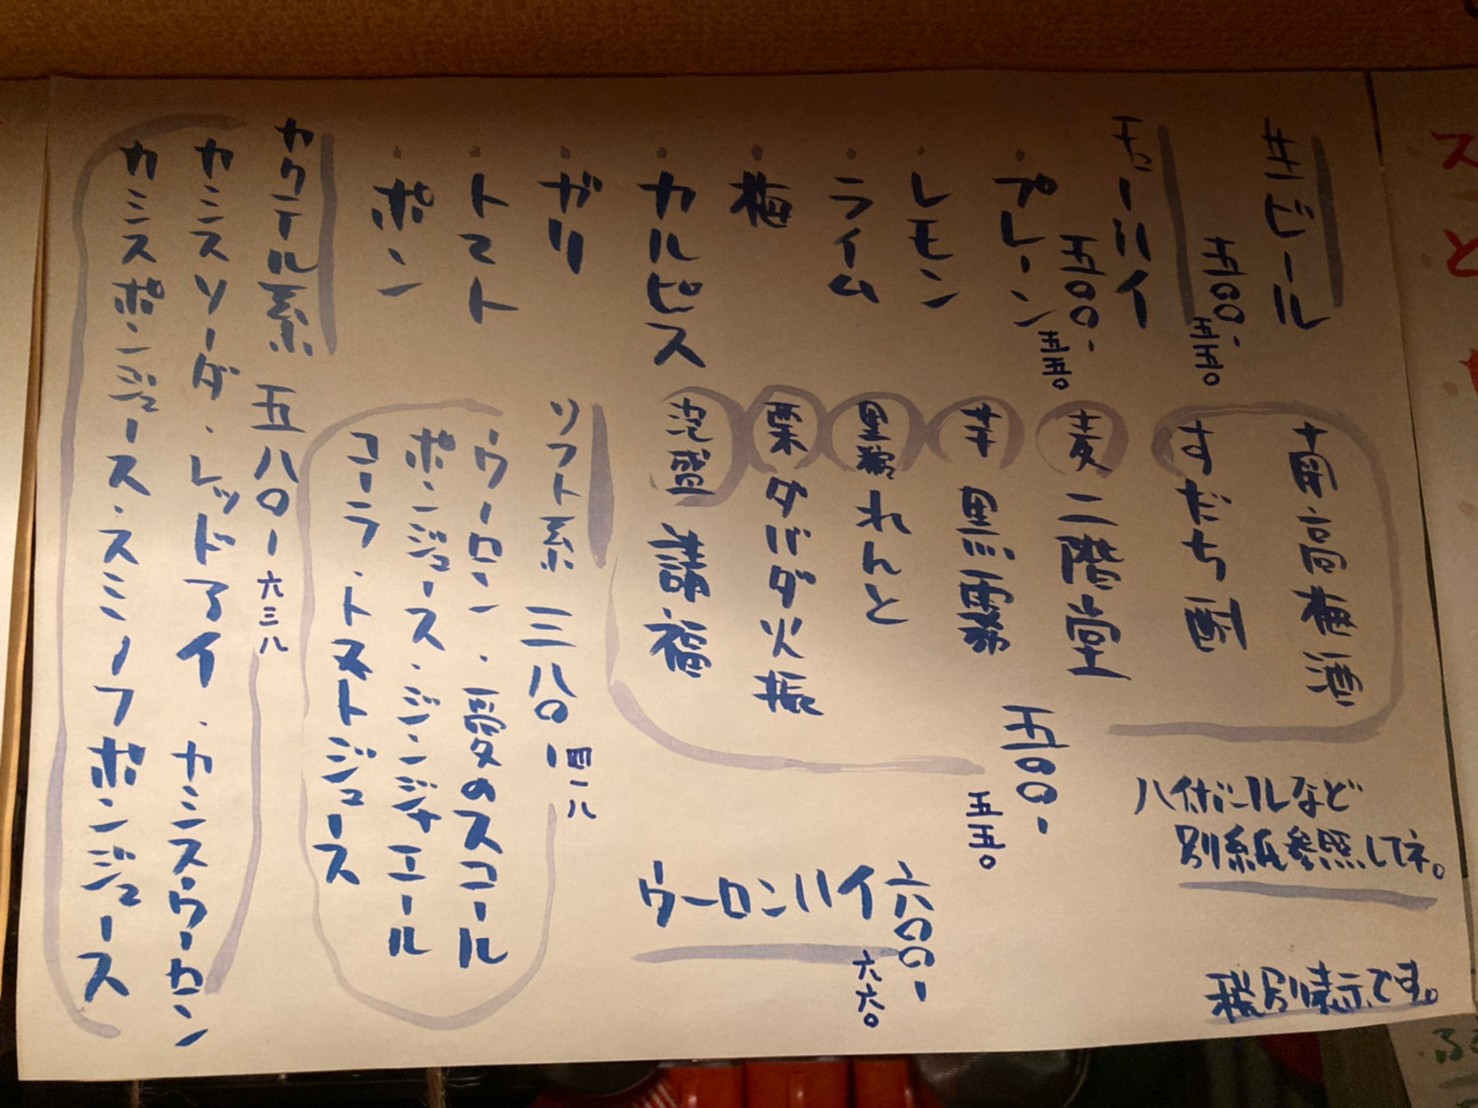 生ビール
五〇〇-
五五〇
チューハイ
五〇〇-
五五〇
・プレーン
・レモン
・ライム
・梅
・カルピス
・ガリ
・トマト
・ポン
カクテル系 五八〇- 六三八
カシスソーダ・レッドアイ・カシスウーロン
カシスポンジュース・スミノフポンジュース
南高梅酒
すだち酎
麦 二階堂
芋 黒霧
黒糖 れんと
栗 ダバダ火振
泡盛 請福
五〇〇-
五五〇
ソフト系 三八〇- 四一八
ウーロン・愛のスコール
ポンジュース・ジンジャエール
コーラ・トマトジュース
ハイボールなど
別紙参照してネ。
ウーロンハイ 六〇〇-
六六〇
税別表示です。
スと